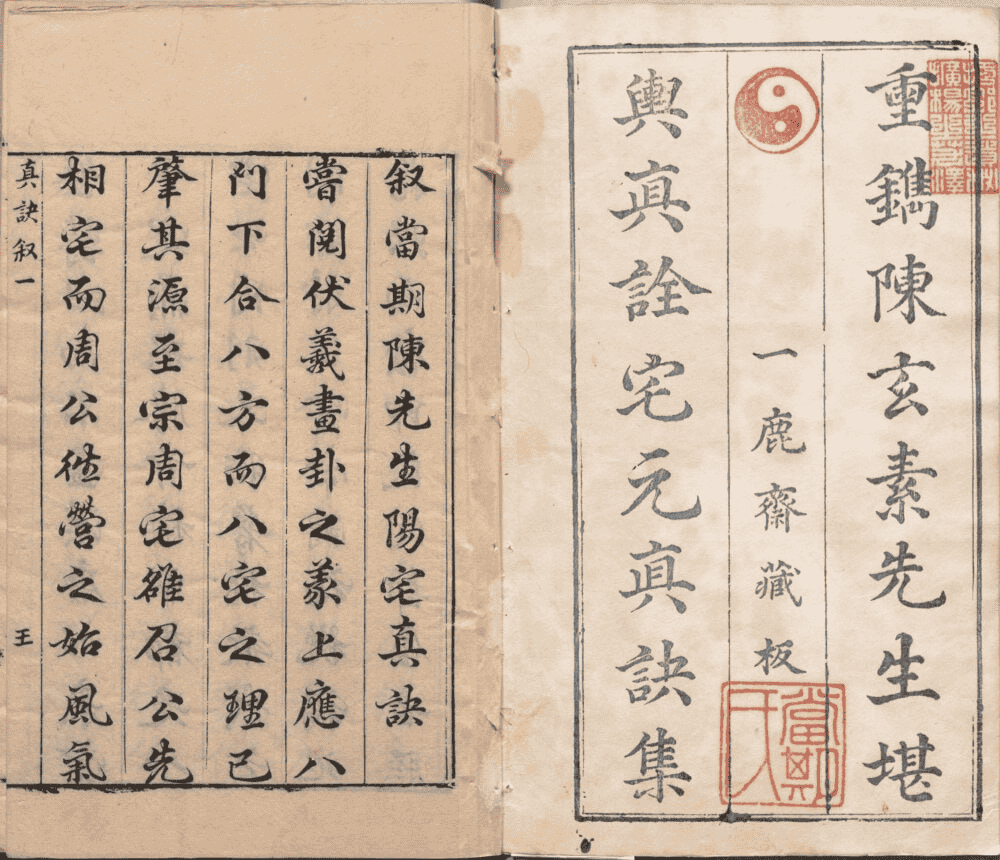 重鐫陳玄素先生堪
一鹿齋藏板
輿真詮宅元真訣集
當期氏
叙當期陳先生陽宅真訣
嘗閱伏羲畫卦之义上應八
門下合八方而八宅之理已
肇其源至宗周宅雒召公先
相宅而周公徃營之始風氣
真訣叙一
王